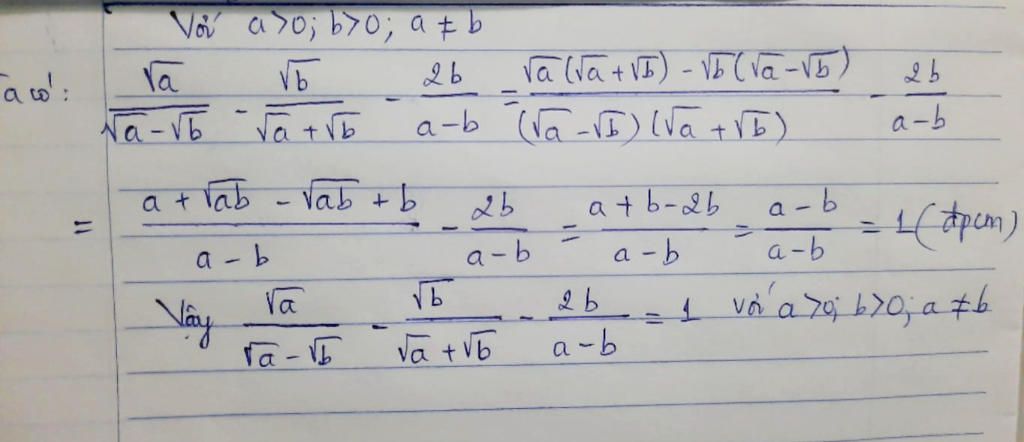 Với a>0; b>0; a ≠ b
a có: √a/(√a-√b) - √b/(√a+√b) - 2b/(a-b) = (√a(√a+√b) - √b(√a-√b))/((√a-√b)(√a+√b)) - 2b/(a-b)
= (a+√ab - √ab + b)/(a-b) - 2b/(a-b) = (a+b-2b)/(a-b) = (a-b)/(a-b) = 1 (đpcm)
Vậy √a/(√a-√b) - √b/(√a+√b) - 2b/(a-b) = 1 với a>0; b>0; a ≠ b